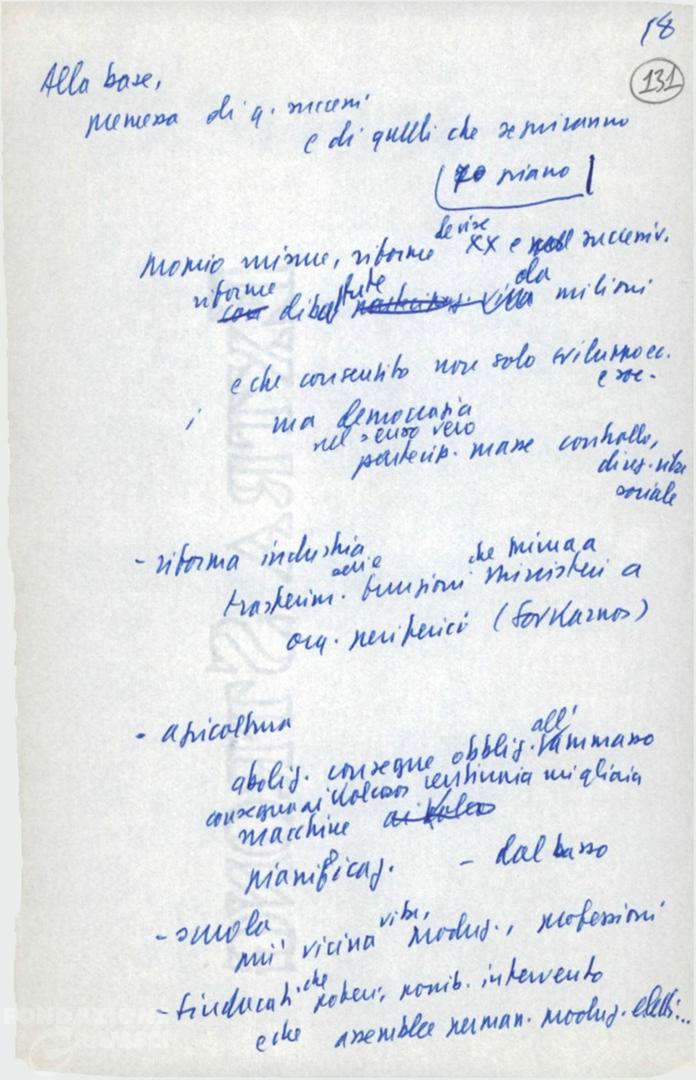 18
131
Alla base,
premessa di q. successi
e di quelli che seguiranno
(70 piano)
Proprio misure, riforme decise XX e successiv.
riforme dibattute da milioni
e che consentito non solo sviluppo ec.
e soc.
ma democrazia
nel senso vero
partecip. masse controllo,
direz. vita
sociale
- riforma industria
serie che prima a
trasferim. funzioni ministeri a
org. periferici (Sovkarnos)
- agricoltura
aboliz. consegne obblig. all'ammasso
consegna ai Kolcos centinaia migliaia
macchine ai Kolcos
pianificaz. - dal basso
- scuola
più vicina vita, produz., professioni
- sindacati che poteri, possib. intervento
e che assemblee perman. produz. elett...